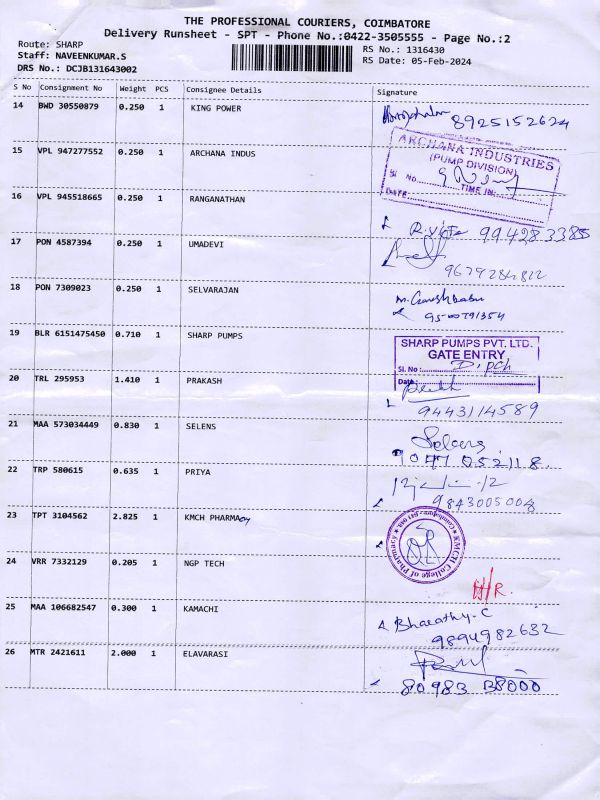 THE PROFESSIONAL COURIERS, COIMBATORE
Delivery Runsheet - SPT - Phone No.:0422-3505555 - Page No.:2
Route: SHARP
Staff: NAVEENKUMAR.S
DRS No.: DCJB131643002
RS No.: 1316430
RS Date: 05-Feb-2024
S No Consignment No Weight PCS Consignee Details Signature
14 BWD 30550879 0.250 1 KING POWER 8925152624
15 VPL 947277552 0.250 1 ARCHANA INDUS
ARCHANA INDUSTRIES
(PUMP DIVISION)
Sl No. TIME IN:
DATE
16 VPL 945518665 0.250 1 RANGANATHAN
17 PON 4587394 0.250 1 UMADEVI
18 PON 7309023 0.250 1 SELVARAJAN M. Ganeshbabu
19 BLR 6151475450 0.710 1 SHARP PUMPS
SHARP PUMPS PVT. LTD.
GATE ENTRY
Sl. No :
Date :
20 TRL 295953 1.410 1 PRAKASH
9443114589
21 MAA 573034449 0.830 1 SELENS Selens
22 TRP 580615 0.635 1 PRIYA
9843005008
23 TPT 3104562 2.825 1 KMCH PHARMACY
KMCH College of Pharmacy
24 VRR 7332129 0.205 1 NGP TECH
H/R.
25 MAA 106682547 0.300 1 KAMACHI A Bharathy.C
9894982632
26 MTR 2421611 2.000 1 ELAVARASI
80983 138000